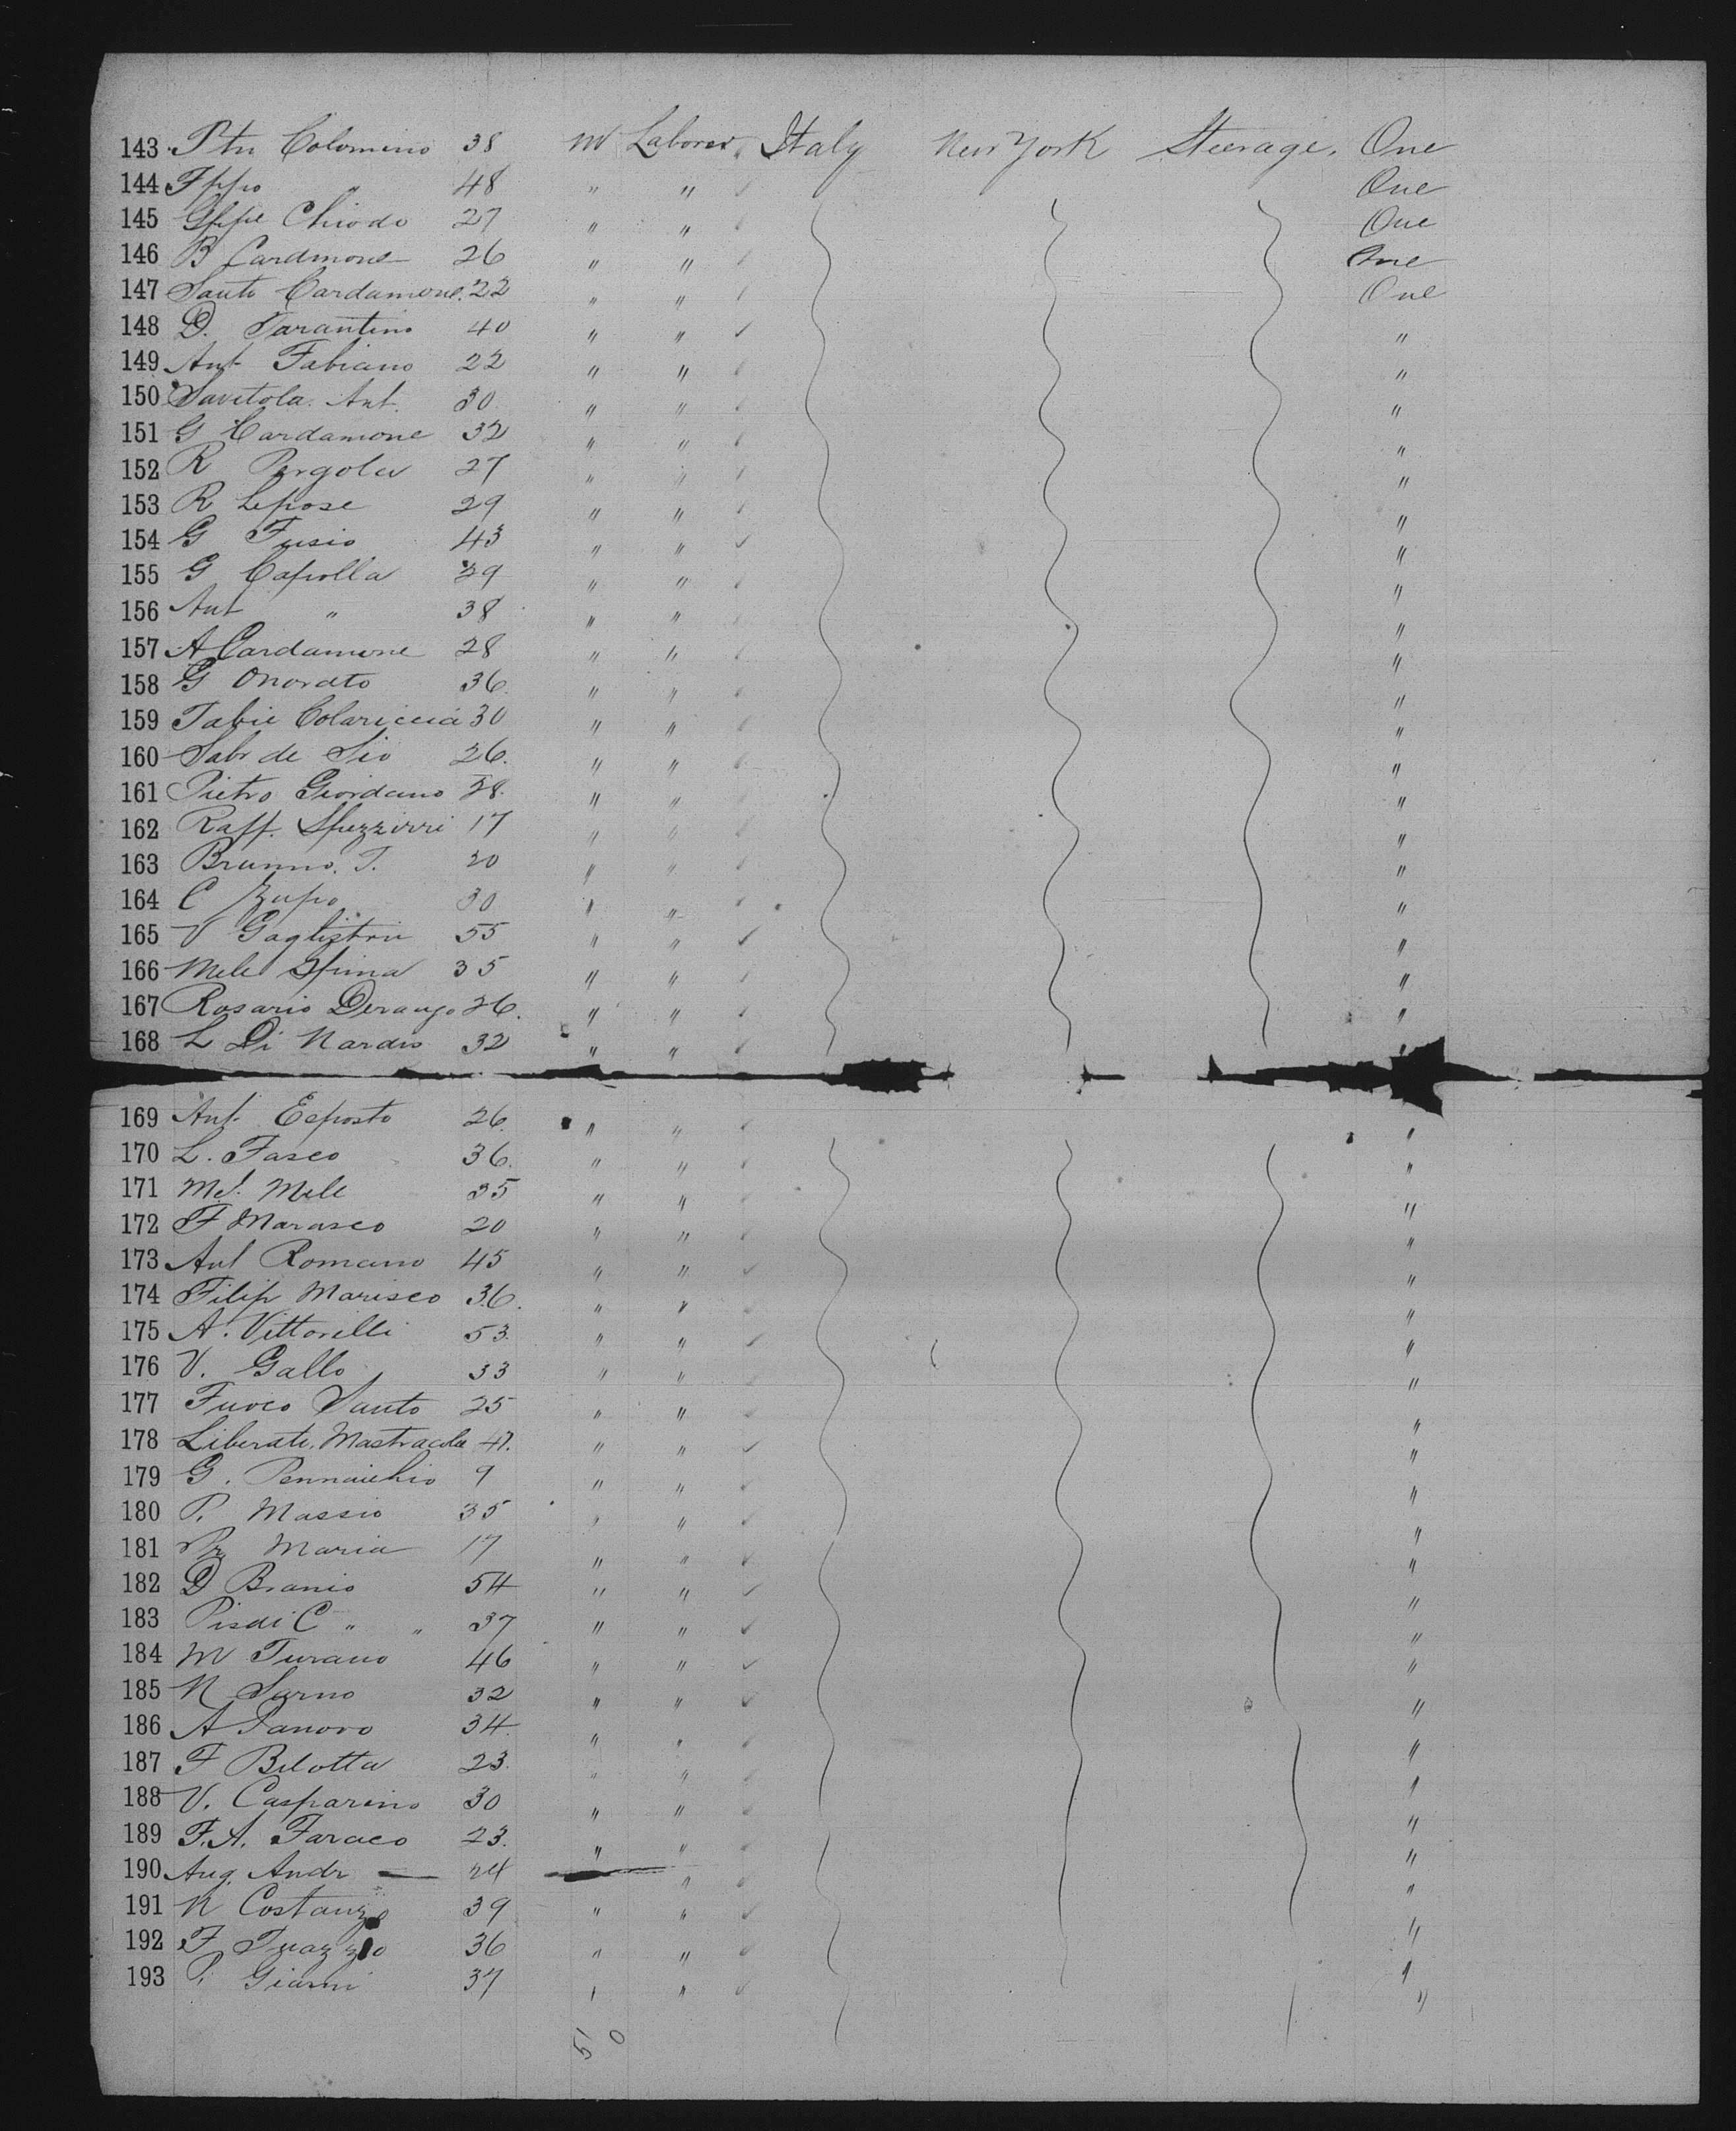 143 Ptu Colomino 38 M Laborer Italy New York Steerage. One
144 Fppo " 48 " " One
145 Gppe Chiodo 27 " " One
146 B Cardmone 26 " " One
147 Santo Cardamone. 22 " " One
148 D. Tarantino 40 " " "
149 Ant Fabiano 22 " " "
150 Savetola. Ant. 30 " " "
151 G Cardamone 32 " " "
152 R Pergola 27 " " "
153 R Lepose 29 " " "
154 G Fusio 43 " " "
155 G Capolla 29 " " "
156 Ant " 38 " " "
157 A Cardamone 28 " " "
158 G Onorato 36. " " "
159 Fabie Colariccia 30 " " "
160 Sabr de Sio 26. " " "
161 Pietro Giordano 28. " " "
162 Raff. Spezzirri 17 " " "
163 Brunno. T. 20 " " "
164 C Zupo 30 " " "
165 V 55 " " "
166 Mele Spina 35 " " "
167 Rosario Derango 26. " " "
168 L Di Nardo 32 " " "
169 Ant. Esposto 26. " " "
170 L. Fasco 36. " " "
171 Ml. Mele 35 " " "
172 F Marasco 20 " " "
173 Ant Romano 45 " " "
174 Filip Marisco 36. " " "
175 A. Vittorelli 53. " " "
176 V. Gallo 33 " " "
177 Fuoco Santo 25 " " "
178 Liberato. Mastracola 47. " " "
179 G. Pennacchio 9 " " "
180 P. Massio 35 " " "
181 Maria 17 " " "
182 D Branio 54 " " "
183 Pisdi C " " 37 " " "
184 M Turano 46 " " "
185 N Sarno 32 " " "
186 A Panoro 34. " " "
187 F Bilotta 23. " " "
188 V. Casparino 30 " " "
189 F. A. Faraco 23. " " "
190 Aug. Andr — 24 — " "
191 N Costanzo 39 " " "
192 F 36 " " "
193 P. Gianni 37 " " "
51 0